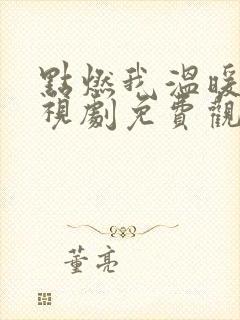 點燃我 溫暖
視劇免費觀
董亮